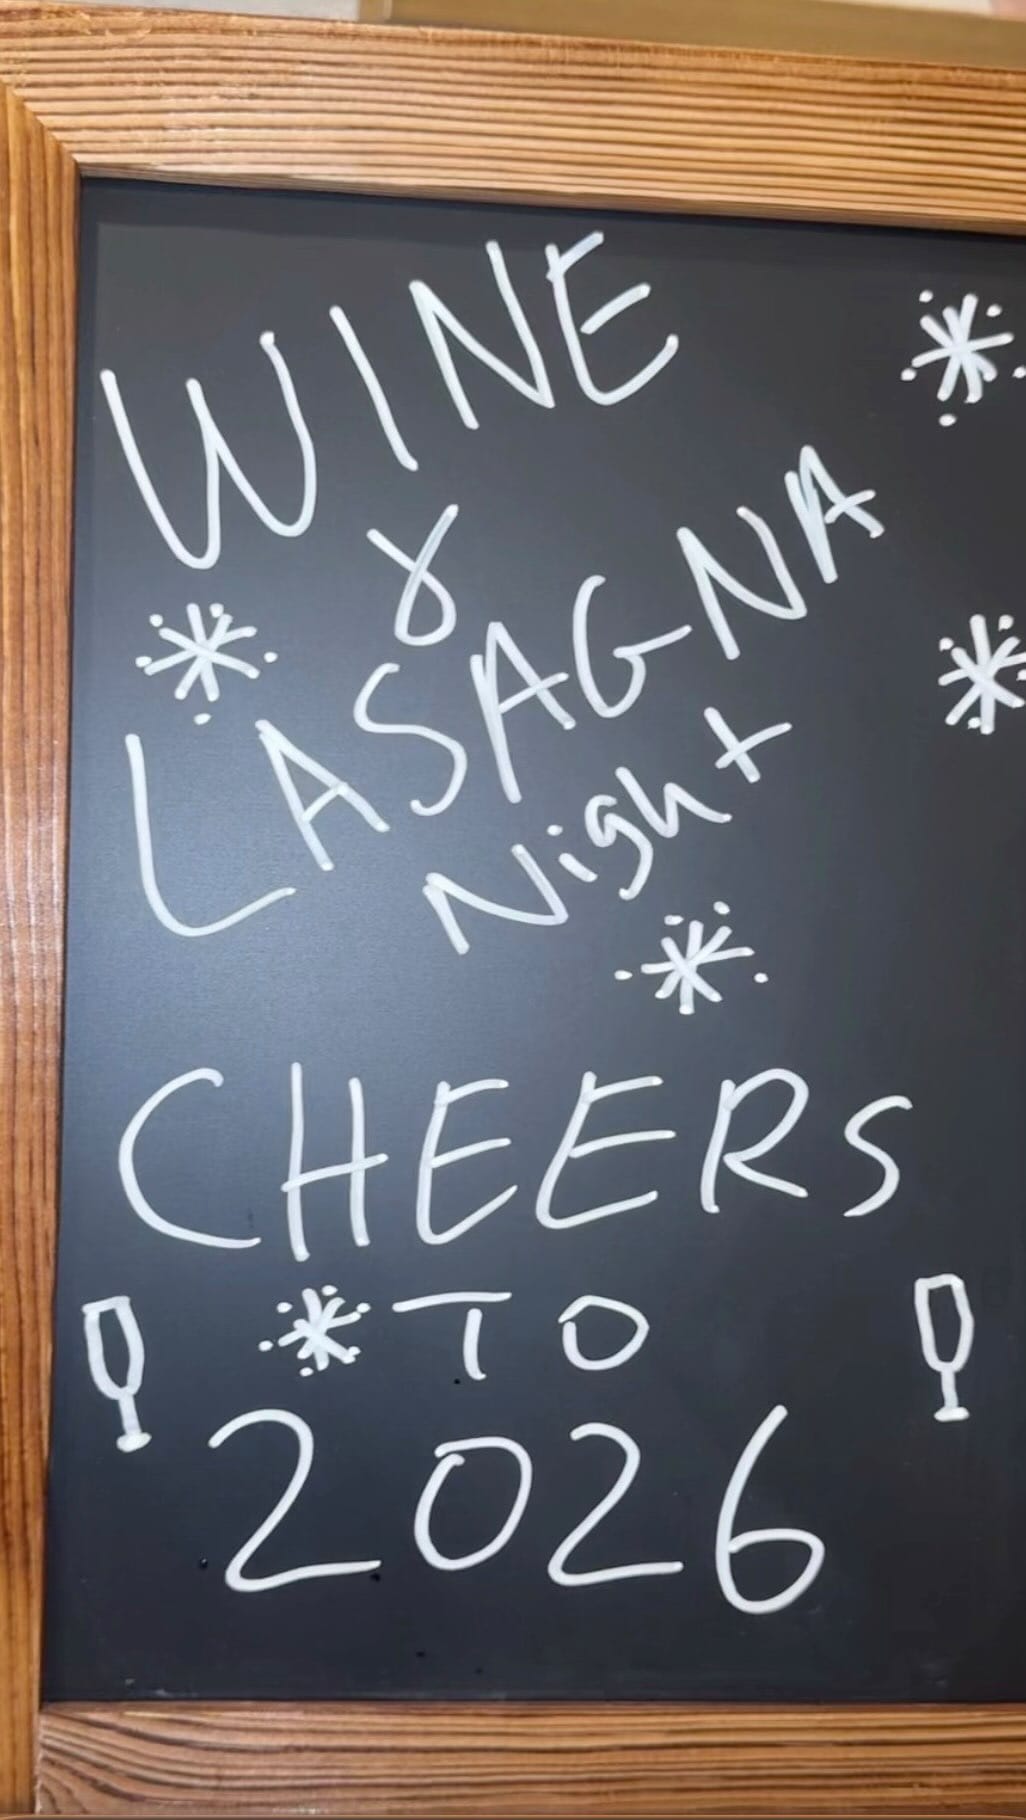 WINE
&
LASAGNA
Night
CHEERS
TO
2026